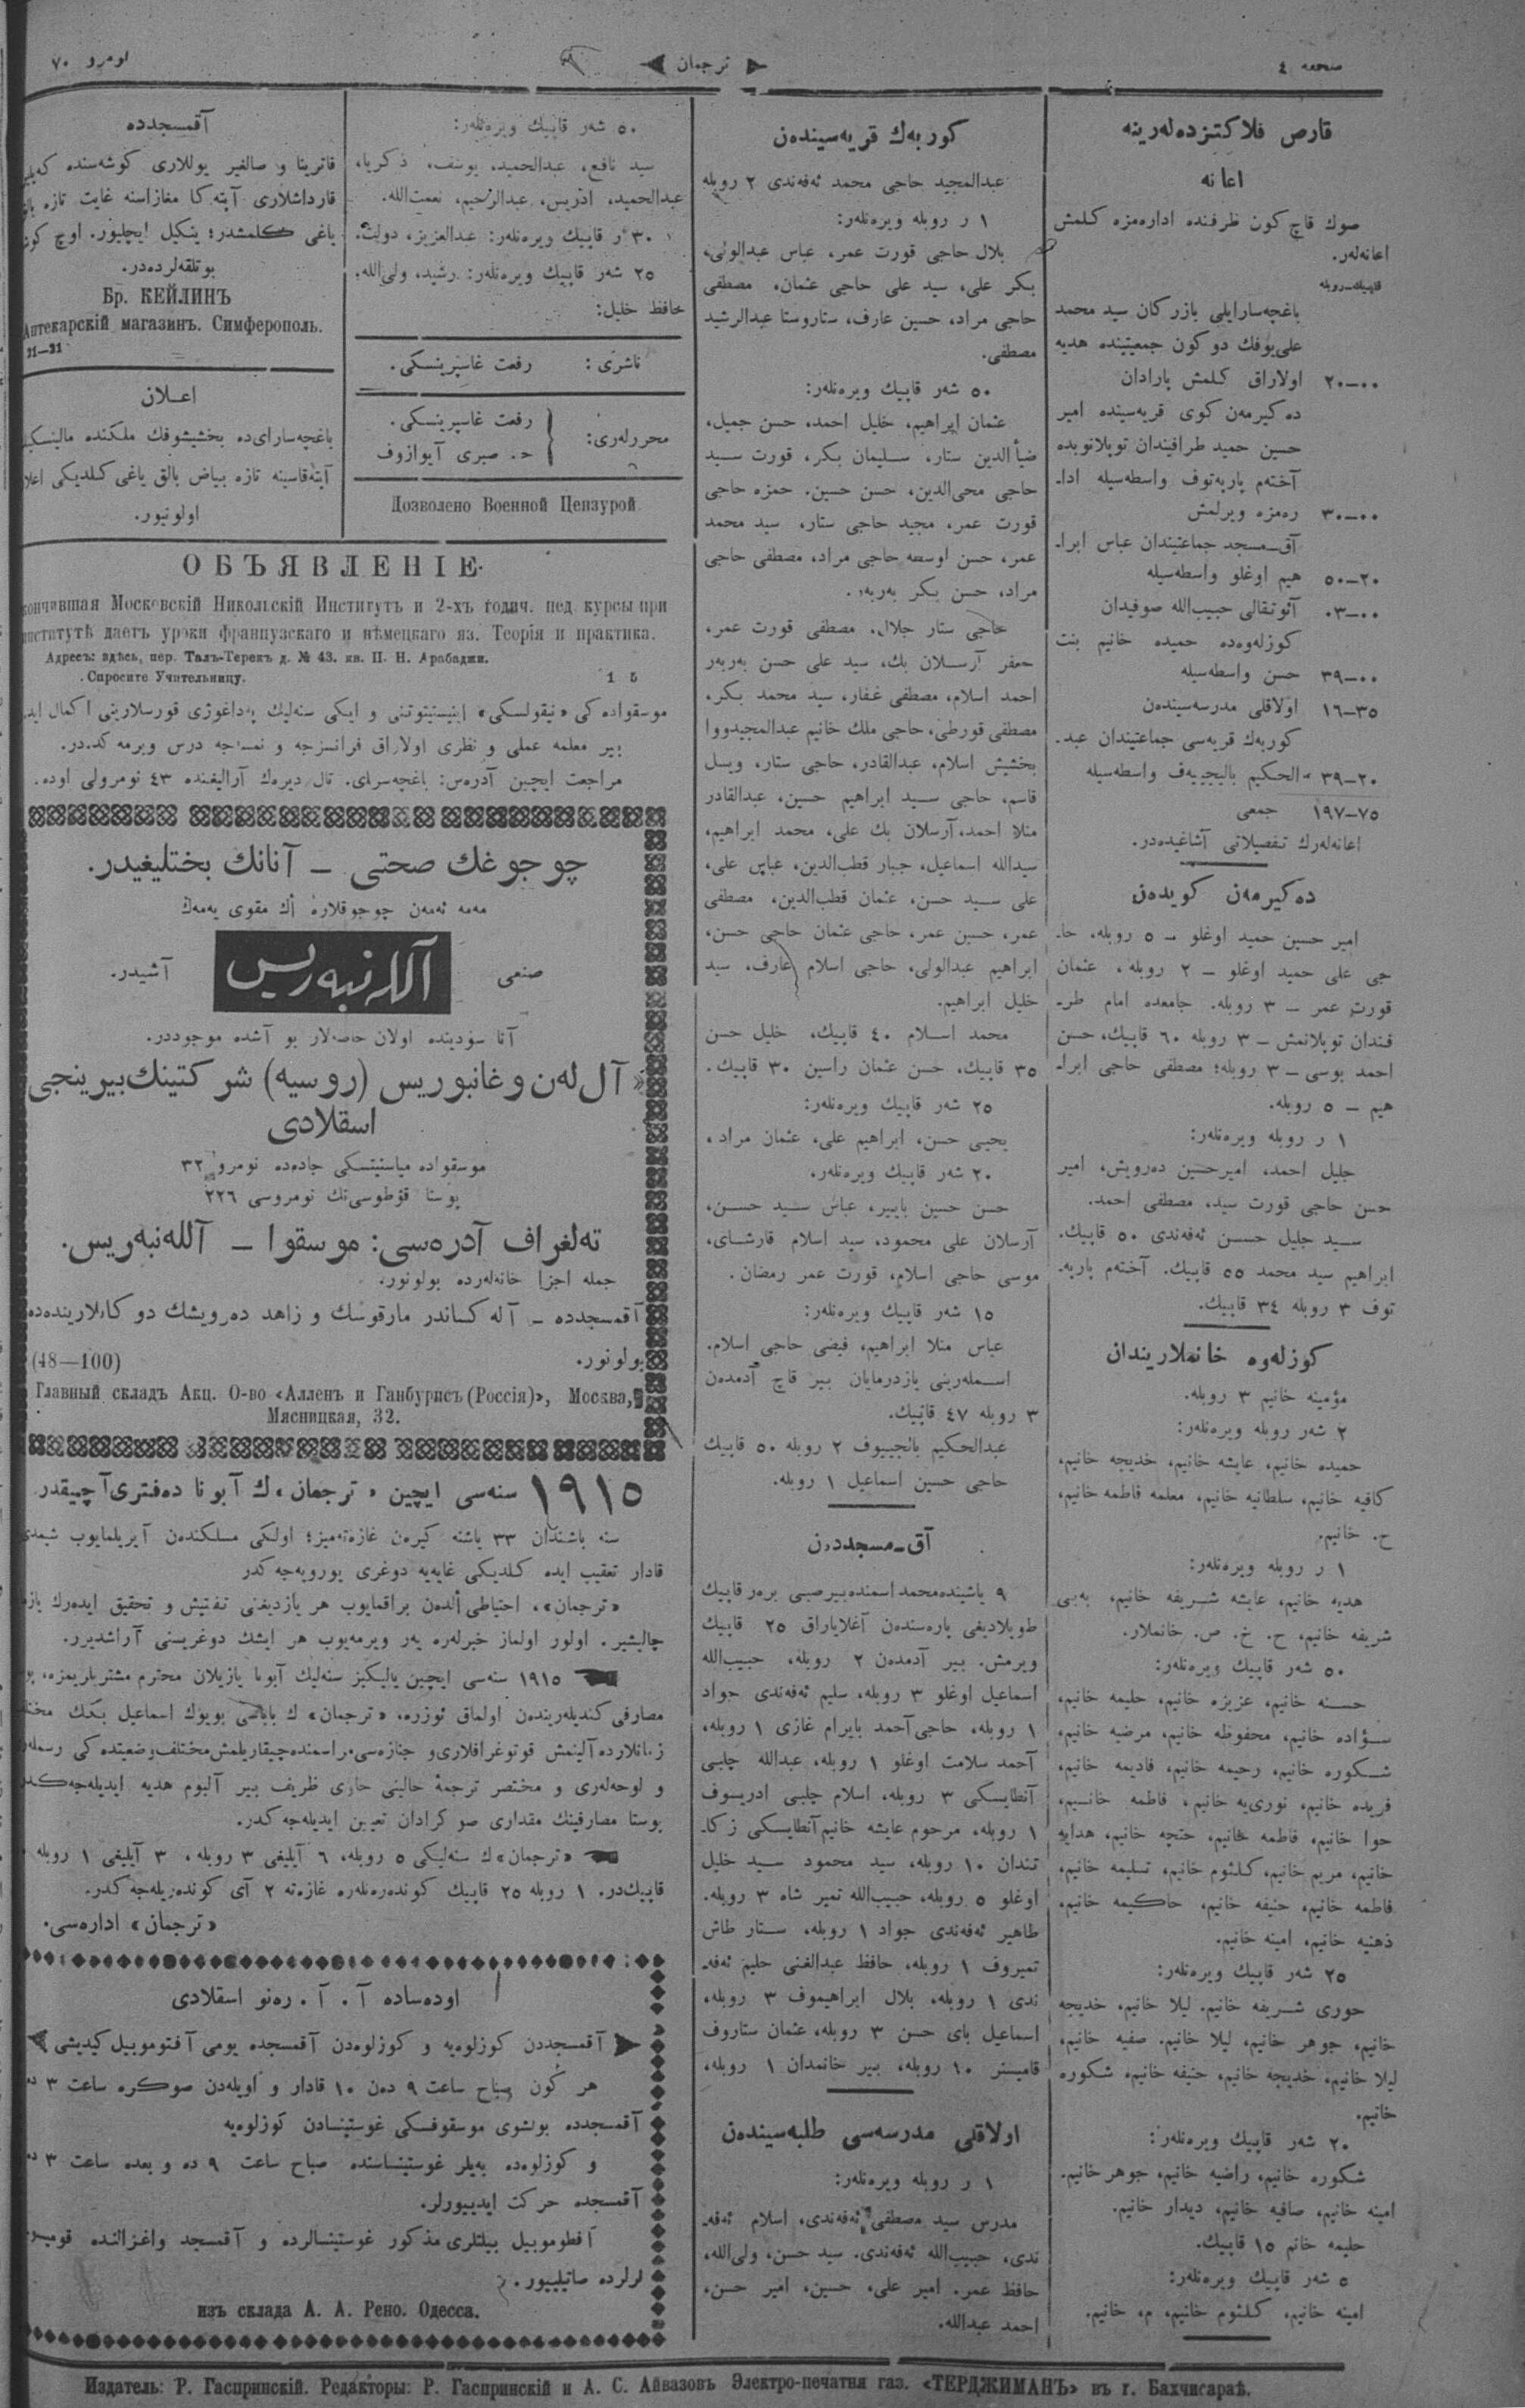 صحیفه ٤
ترجمان
نومرو ٧٠
قارص فلاكتزده‌له‌رینه
اعانه
صوك قاچ كون ظرفنده اداره‌مزه كلمش
اعانه‌له‌ر.
قاپیك—روبله
باغچه‌سارایلی بازركان سید محمد
علی‌یوفك دوكون جمعیتینده هدیه
اولاراق كلمش پارادان ٠٠—٢٠
ده‌كیرمه‌ن كوی قریه‌سینده امیر
حسین حمید طرافیندان توپلانوبده
آختم یاریه‌توف واسطه‌سیله ادا-
ره‌مزه ویرلمش ٠٠—٣٠
آق-مسجد جماعتیندان عباس ابرا-
هیم اوغلو واسطه‌سیله ٢٠—٥٠
آئوتقالی حبیب‌الله صوفیدان ٠٠—٠٣
كوزله‌وه‌ده حمیده خانیم بنت
حسن واسطه‌سیله ٠٠—٣٩
اولاقلی مدرسه‌سیندەن ٣٥—١٦
كوربه‌ك قریه‌سی جماعتیندان عبد-
الحكیم بالیجییه‌ف واسطه‌سیله ٢٠—٣٩
جمعی ٧٥—١٩٧
اعانه‌له‌رك تفصیلاتی آشاغیده‌در.
ده‌كیرمه‌ن كویدەن
امیر حسین حمید اوغلو — ٥ روبله، حا-
جی علی حمید اوغلو — ٢ روبله، عثمان
قورت عمر — ٣ روبله. جامعده امام طر-
فندان توپلانمش — ٣ روبله ٦٠ قاپیك، حسن
احمد بوسی — ٣ روبله؛ مصطفی حاجی ابرا-
هیم — ٥ روبله.
١ ر روبله ویره‌نله‌ر:
جلیل احمد، امیرحسین ده‌رویش، امیر
حسن حاجی قورت سید، مصطفی احمد.
سید جلیل حسن ئه‌فه‌ندی ٥٠ قاپیك.
ابراهیم سید محمد ٥٥ قاپیك. آختم یاریه-
توف ٣ روبله ٣٤ قاپیك.
كوزله‌وه خانملاریندان
مؤمینه خانیم ٣ روبله.
٢ شه‌ر روبله ویره‌نله‌ر:
حمیده خانیم، عایشه خانیم، خدیجه خانیم،
كافیه خانیم، سلطانیه خانیم، معلمه فاطمه خانیم،
ح. خانیم.
١ ر روبله ویره‌نله‌ر:
هدیه خانیم، عایشه شریفه خانیم، بەبی
شریفه خانیم، ح. خ. ص. خانملار.
٥٠ شه‌ر قاپیك ویره‌نله‌ر:
حسنه خانیم، عزیزه خانیم، حلیمه خانیم،
سؤاده خانیم، محفوظه خانیم، مرضیه خانیم،
شكوره خانیم، رحیمه خانیم، قادیمه خانیم،
فریده خانیم، نوری‌یه خانیم، فاطمه خانیم،
حوا خانیم، فاطمه خانیم، حتچه خانیم، هدایه
خانیم، مریم خانیم، كلثوم خانیم، تسلیمه خانیم،
فاطمه خانیم، حنیفه خانیم، حاكیمه خانیم،
ذهنیه خانیم، امینه خانیم.
٢٥ شه‌ر قاپیك ویره‌نله‌ر:
حوری شریفه خانیم. لیلا خانیم، خدیجه
خانیم، جوهر خانیم، لیلا خانیم. صفیه خانیم،
لیلا خانیم، خدیجه خانیم، حنیفه خانیم، شكوره
خانیم.
٢٠ شه‌ر قاپیك ویره‌نله‌ر:
شكوره خانیم، راضیه خانیم، جوهر خانیم.
امینه خانیم، صافیه خانیم، دیدار خانیم.
حلیمه خانم ١٥ قاپیك.
٥ شه‌ر قاپیك ویره‌نله‌ر:
امینه خانیم، كلثوم خانیم، م، خانیم.
كوربه‌ك قریه‌سیندەن
عبدالمجید حاجی محمد ئه‌فه‌ندی ٢ روبله
١ ر روبله ویره‌نله‌ر:
بلال حاجی قورت عمر، عباس عبدالولی،
بكر علی، سید علی حاجی عثمان، مصطفی
حاجی مراد، حسین عارف، ستاروستا عبدالرشید
مصطفی.
٥٠ شه‌ر قاپیك ویره‌نله‌ر:
عثمان ابراهیم، خلیل احمد، حسن جمیل،
ضیأالدین ستار، سلیمان بكر، قورت سید
حاجی محی‌الدین، حسن حسین. حمزه حاجی
قورت عمر، مجید حاجی ستار، سید محمد
عمر، حسن اوسطه حاجی مراد، مصطفی حاجی
مراد، حسن بكر به‌ربه‌ر.
حاجی ستار جلال، مصطفی قورت عمر،
جعفر آرسلان بك، سید علی حسن به‌ربه‌ر
احمد اسلام، مصطفی غفار، سید محمد بكر،
مصطفی قورطی، حاجی ملك خانیم عبدالمجیدووا
بخشیش اسلام، عبدالقادر، حاجی ستار، ویسل
قاسم، حاجی سید ابراهیم حسین، عبدالقادر
منلا احمد، آرسلان بك علی، محمد ابراهیم،
سیدالله اسماعیل، جبار قطب‌الدین، عباس علی،
علی سید حسن، عثمان قطب‌الدین، مصطفی
عمر، حسین عمر، حاجی عثمان حاجی حسن،
ابراهیم عبدالولی، حاجی اسلام عارف، سید
خلیل ابراهیم.
محمد اسلام ٤٠ قاپیك، خلیل حسن
٣٥ قاپیك، حسن عثمان راسین ٣٠ قاپیك.
٢٥ شه‌ر قاپیك ویره‌نله‌ر:
یحیی حسن، ابراهیم علی، عثمان مراد،
٢٠ شه‌ر قاپیك ویره‌نله‌ر،
حسن حسین بایبر، عباس سید حسن،
آرسلان علی محمود، سید اسلام قارشای،
موسی حاجی اسلام، قورت عمر رمضان.
١٥ شه‌ر قاپیك ویره‌نله‌ر:
عباس منلا ابراهیم، فیضی حاجی اسلام.
اسمله‌رینی یازدرمایان بیر قاچ آدمدەن
٣ روبله ٤٧ قاپیك.
عبدالحكیم بالجییوف ٢ روبله ٥٠ قاپیك
حاجی حسین اسماعیل ١ روبله.
آق-مسجددن
٩ یاشینده محمد اسمنده بیر صبی برەر قاپیك
طوپلادیغی پاره‌سندەن آغلایاراق ٢٥ قاپیك
ویرمش. بیر آدمدەن ٢ روبله، حبیب‌الله
اسماعیل اوغلو ٣ روبله، سلیم ئه‌فه‌ندی جواد
١ روبله، حاجی آحمد بایرام غازی ١ روبله،
آحمد سلامت اوغلو ١ روبله، عبدالله چلبی
آنطایسكی ٣ روبله، اسلام چلبی ادریسوف
١ روبله، مرحوم عایشه خانیم آنطایسكی زكا-
تندان ١٠ روبله، سید محمود سید خلیل
اوغلو ٥ روبله، حبیب‌الله تمیر شاه ٣ روبله.
طاهیر ئه‌فه‌ندی جواد ١ روبله، ستار طاش
تمیروف ١ روبله، حافظ عبدالغنی حلیم ئه‌فه-
ندی ١ روبله، بلال ابراهیموف ٣ روبله،
اسماعیل بای حسن ٣ روبله، عثمان ستاروف
قامیسنر ١٠ روبله، بیر خانمدان ١ روبله،
اولاقلی مدرسه‌سی طلبه‌سیندەن
١ ر روبله ویره‌نله‌ر:
مدرس سید مصطفی ئه‌فه‌ندی، اسلام ئه‌فه-
ندی، حبیب‌الله ئه‌فه‌ندی. سید حسن، ولی‌الله،
حافظ عمر. امیر علی، حسین، امیر حسن،
احمد عبدالله.
٥٠ شه‌ر قاپیك ویره‌نله‌ر:
سید نافع، عبدالحمید، یوسف، ذكریا،
عبدالحمید، ادریس، عبدالرحیم، نعمت‌الله.
٣٠ ر قاپیك ویره‌نله‌ر: عبدالعزیز، دولت.
٢٥ شه‌ر قاپیك ویره‌نله‌ر: رشید، ولی‌الله.
حافظ خلیل:
ناشری: رفعت غاسپرینسكی.
محررله‌ری: رفعت غاسپرینسكی.
ح. صبری آیوازوف
Дозволено Военной Цензурой
آقمسجدده
قاترینا و صالغیر یوللاری كوشه‌سنده
قارداشلاری آپته‌كا مغازاسنه غایت تازه
یاغی كلمشدر؛ ینكیل ایچلیور. اوچ
بوتلقه‌لرده‌در.
Бр. КЕЙЛИНЪ
Аптекарскій магазинъ. Симферополь.
21—21
اعلان
باغچه‌سارای‌ده بخشیشوفك ملكنده
آپته‌قاسینه تازه بیاض بالق یاغی كلدیكی
اولونیور.
ОБЪЯВЛЕНІЕ
кончившая Московскій Никольскій Институтъ и 2-хъ годич. пед. курсы при
институтѣ даетъ уроки французскаго и нѣмецкаго яз. Теорія и практика.
Адресъ: здѣсь, пер. Талъ-Терекъ д. № 43. кв. П. Н. Арабаджи.
Спросите Учательницу. 1 5
موسقواده‌كی «نیقولسكی» اینیستیتوتنی و ایكی سنه‌لیك په‌داغوژی قورسلارینی اكمال
بیر معلمه عملی و نظری اولاراق فرانسزجه و نمسه‌جه درس ویرمه‌كده‌در.
مراجعت ایچین آدره‌س: باغچه‌سرای. تال دیره‌ك آرالیغنده ٤٣ نومرولی اوده.
چوجوغك صحتی — آنانك بختلیغیدر.
مه‌مه ئه‌مه‌ن چوجوقلاره اڭ مقوی یه‌مه‌ك
صنعی آللەنبەریس آشیدر.
آنا سؤدینده اولان خاصه‌لار بو آشده موجوددر.
«آل‌له‌ن و غانبوریس (روسیه) شركتینك بیرینجی
اسقلادی
موسقواده میاسنیتسكی جاده‌ده نومرو ٣٢
پوستا قوطوسی‌نك نومروسی ٢٢٦
ته‌لغراف آدره‌سی: موسقوا — آلله‌نبه‌ریس.
جمله اجزا خانه‌له‌رده بولونور.
آقمسجدده — آله‌كساندر مارقوسك و زاهد ده‌رویشك دوكانلارینده‌ده
بولونور. (48—100)
Главный складъ Акц. О-во «Алленъ и Ганбурисъ (Россія)», Москва,
Мясницкая, 32.
١٩١٥ سنه‌سی ایچین «ترجمان»ك آبونا ده‌فتری آچیقدر.
سنه باشندان ٣٣ یاشنه كیره‌ن غازه‌ته‌میز؛ اولكی مسلكندەن آیریلمایوب شیمدی
قادار تعقیب ایده كلدیكی غایه‌یه دوغری یورویه‌جه‌كدر
«ترجمان»، احتیاطی ألدەن براقمایوب هر یازدیغنی تفتیش و تحقیق ایده‌رك
چالیشیر. اولور اولماز خبرله‌ره یه‌ر ویرمه‌یوب هر ایشك دوغریسنی آراشدیرر.
١٩١٥ سنه‌سی ایچین یالیكیز سنه‌لیك آبونا یازیلان محترم مشتریلریمزه،
مصارفی كندیله‌ریندەن اولماق ئوزره، «ترجمان»ك باباسی بویوك اسماعیل بكك
زمانلارده آلینمش فوتوغرافلاری و جنازه‌سی مراسمنده چیقاریلمش مختلف وضعیتده‌كی
و لوحه‌له‌ری و مختصر ترجمۀ حالینی حاوی ظریف بیر آلبوم هدیه ایدیله‌جه‌كدر
پوستا مصارفینك مقداری صوكرادان تعیین ایدیله‌جه‌كدر.
«ترجمان»ك سنه‌لیكی ٥ روبله، ٦ آیلیغی ٣ روبله، ٣ آیلیغی ١ روبله
قاپیك‌در. ١ روبله ٢٥ قاپیك كونده‌ره‌نله‌ره غازه‌ته ٢ آی كونده‌ریله‌جه‌كدر.
«ترجمان» اداره‌سی.
اوده‌ساده آ. آ. ره‌نو اسقلادی
آقمسجددن كوزلوه‌یه و كوزلوه‌دن آقمسجده یومی آفتوموبیل كیدیشی
هر كون صباح ساعت ٩ ده‌ن ١٠ قادار و اویله‌دن صوكره ساعت ٣
آقمسجدده بولشوی موسقوفسكی غوستینسادن كوزلوه‌یه
و كوزلوه‌ده به‌یلر غوستینساسنده صباح ساعت ٩ ده و بعده ساعت ٣
آقمسجده حركت ایدییورلر.
آفطوموبیل بیلتلری مذكور غوستینسالرده و آقمسجد واغزالنده
لرلرده صاتیلییور.
изъ склада А. А. Рено. Одесса.
Издатель: Р. Гаспринскій. Редакторы: Р. Гаспринскій и А. С. Айвазовъ Электро-печатня газ. «ТЕРДЖИМАНЪ» въ г. Бахчисараѣ.